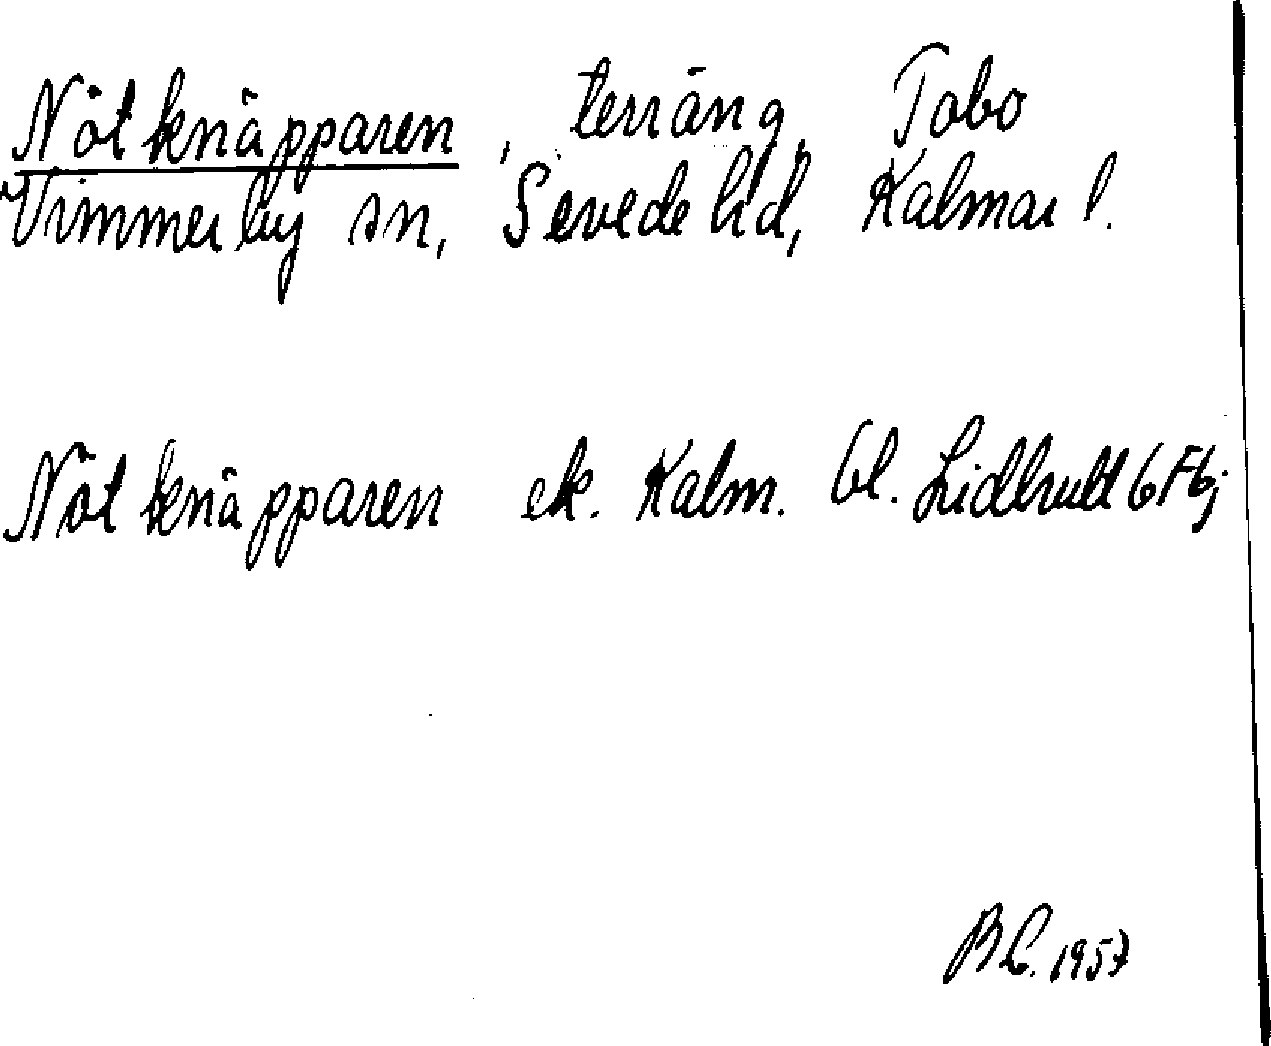 Nötknäpparen, terräng, Tobo
Vimmerby sn, Sevede hd, Kalmar l.
Nötknäpparen ek. Kalm. bl. Lidhult 6 F 6 j
1957